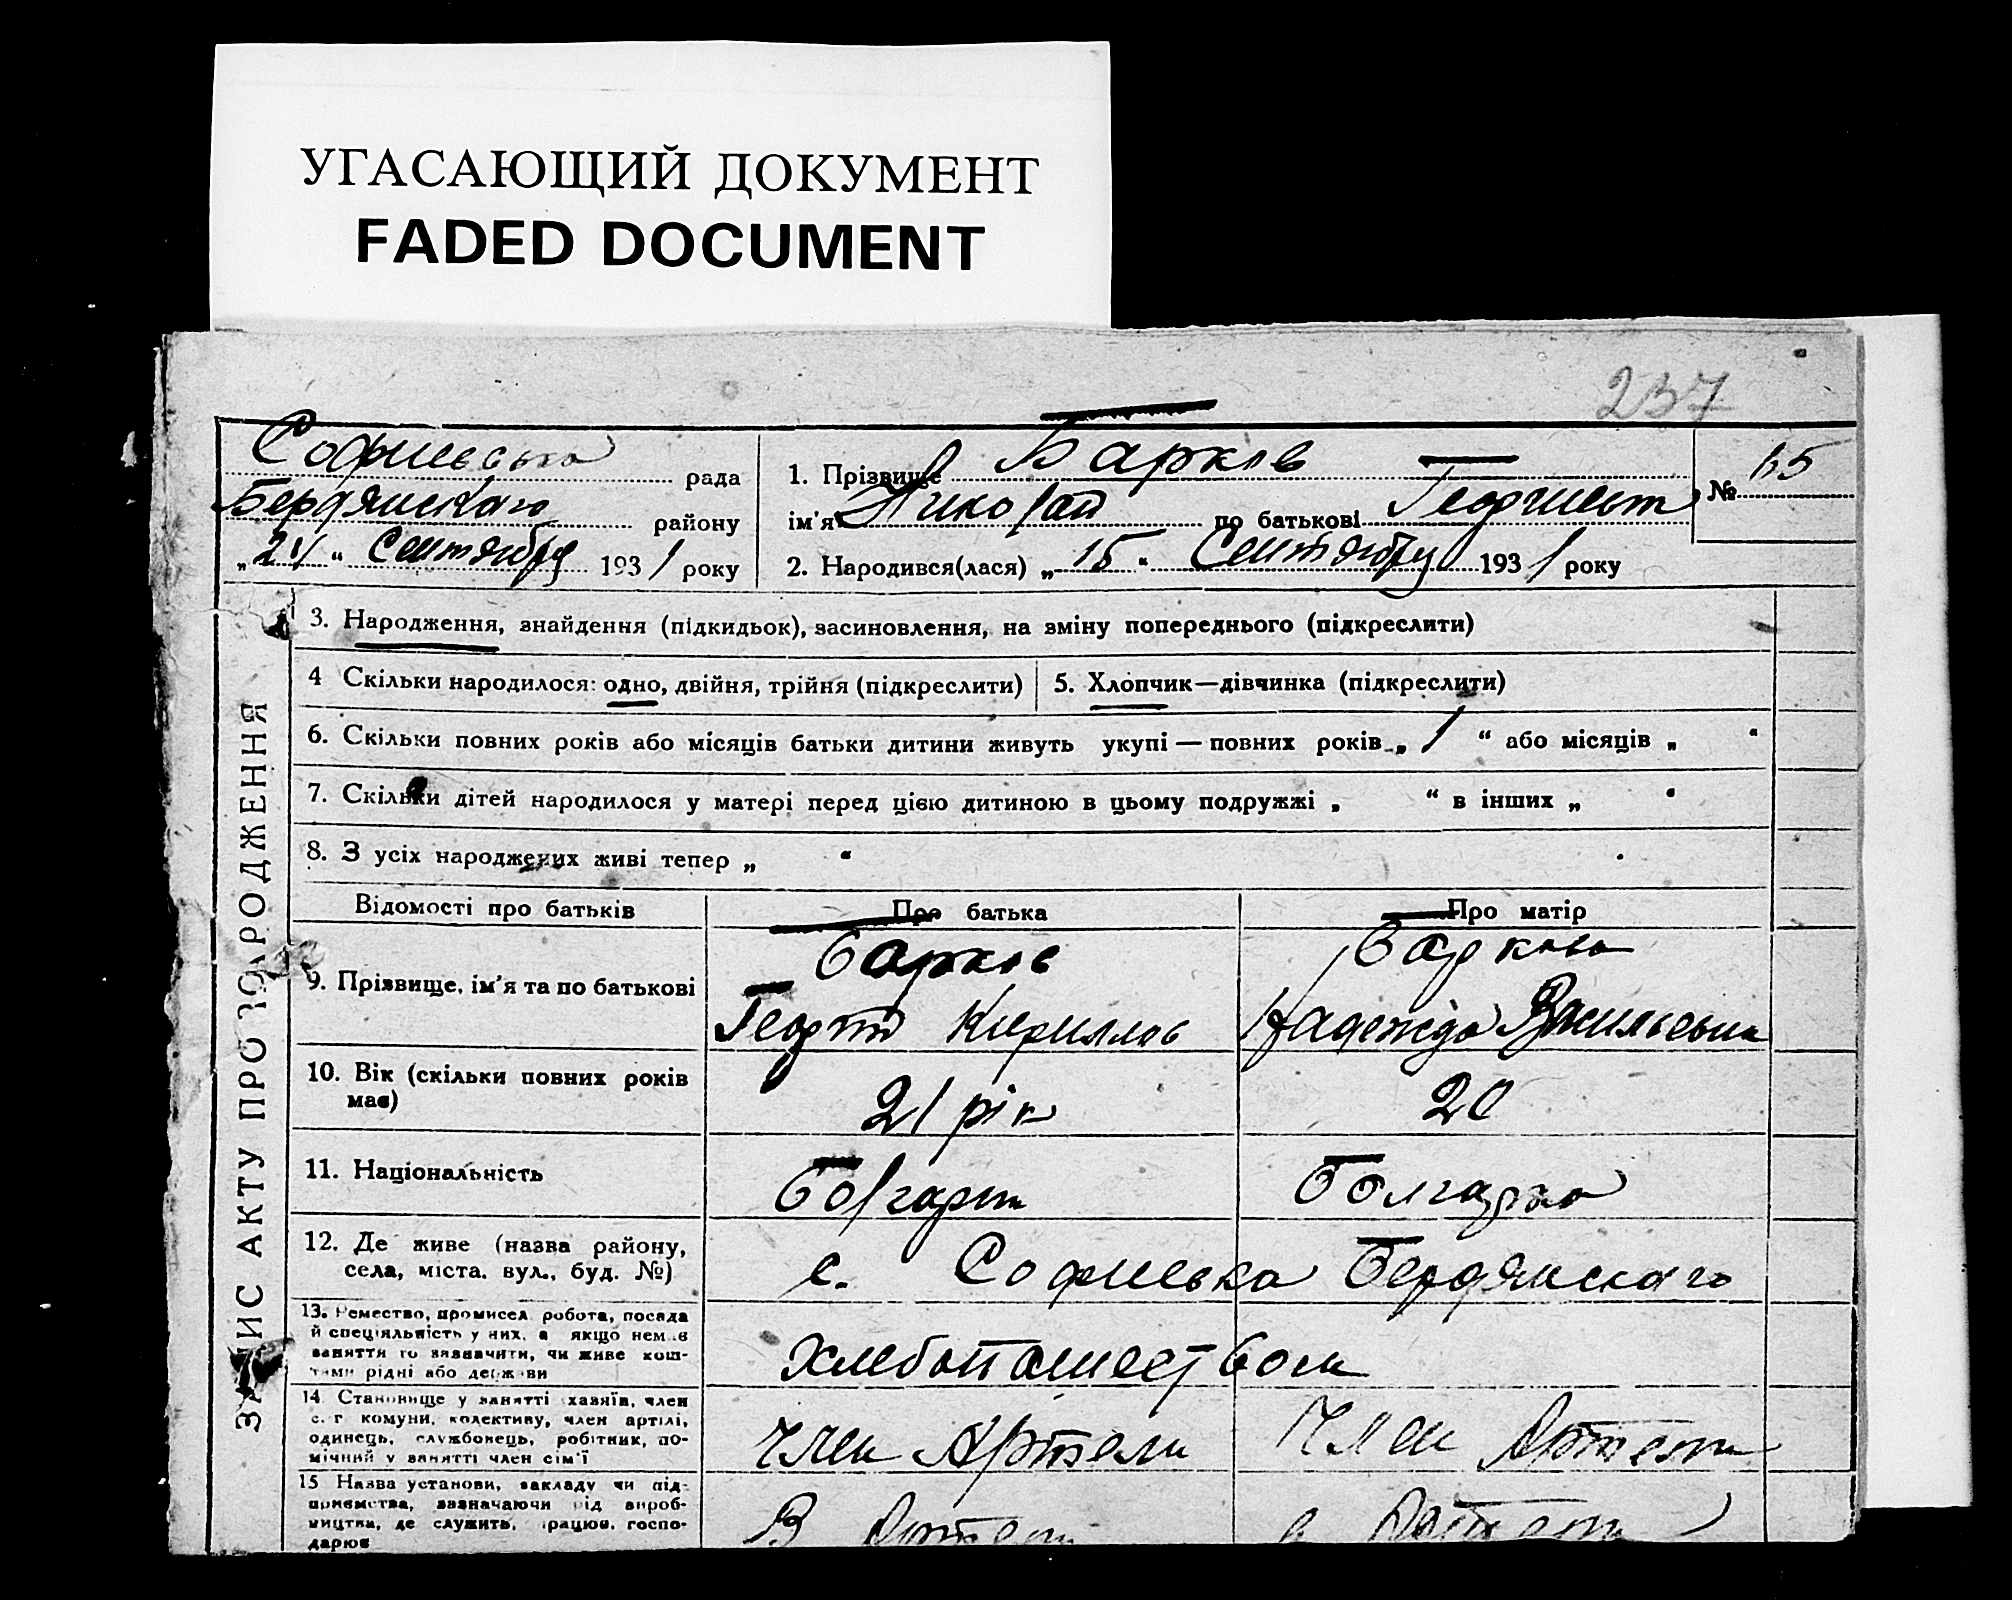 УГАСАЮЩИЙ ДОКУМЕНТ
FADED DOCUMENT
237
Софиевська рада
Бердянскаго району
„21“ Сентября 1931 року
1. Прізвище Барков
ім'я Николай по батькові Георгиевич
№ 65
2. Народився(лася) „15“ Сентября 1931 року
ЗАПИС АКТУ ПРО НАРОДЖЕННЯ
3. Народження, знайдення (підкидьок), засиновлення, на зміну попереднього (підкреслити)
4 Скільки народилося: одно, двійня, трійня (підкреслити)
5. Хлопчик—дівчинка (підкреслити)
6. Скільки повних років або місяців батьки дитини живуть укупі — повних років „ 1 “ або місяців „ “
7. Скільки дітей народилося у матері перед цією дитиною в цьому подружжі „ “ в інших „ “
8. З усіх народжених живі тепер „ “
Відомості про батьків
Про батька
Про матір
9. Прізвище, ім'я та по батькові
Барков
Георгий Кириллов
Баркова
Надежда Васильевна
10. Вік (скільки повних років
має)
21 рік
20
11. Національність
Болгарин
Болгарка
12. Де живе (назва району,
села, міста, вул., буд. №)
с. Софиевка Бердянскаго
13. Ремество, промисел, робота, посада
й спеціяльність у них, а якщо немає
заняття то зазначити, чи живе кош-
тами рідні або держави
Хлебопашеством
14. Становище у занятті хазяїн, член
с. г комуни, колективу, член артілі,
одинець, службовець, робітник, по-
мічний у занятті член сім'ї
Член Артели
Член Артели
15 Назва установи, закладу чи під-
приємства, зазначаючи рід вироб-
ництва, де служить, працює, госпо-
дарює
В Артели
в Артели